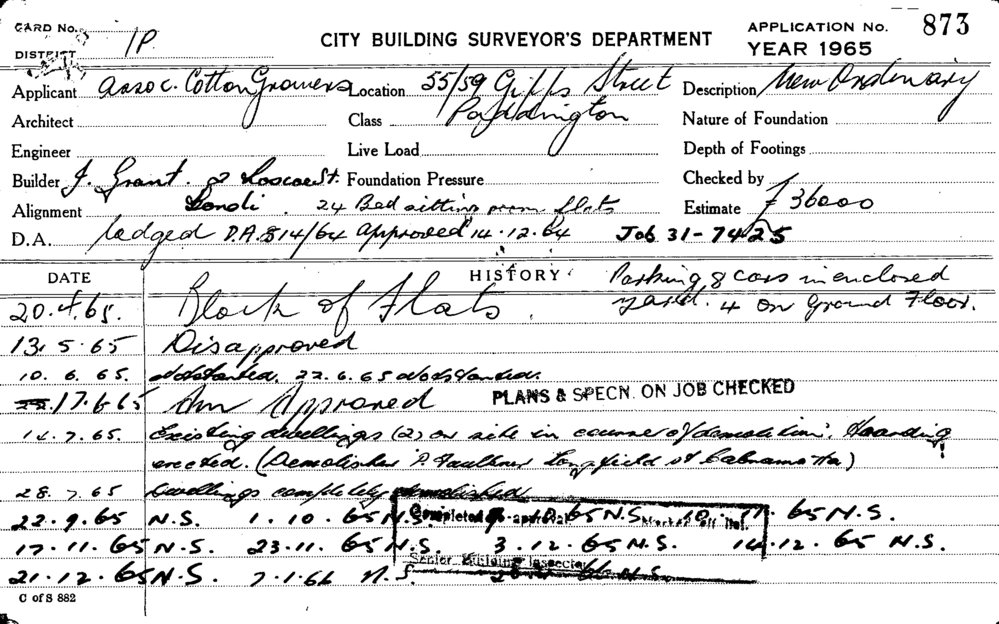 CARD No.
DISTRICT 1P
CITY BUILDING SURVEYOR'S DEPARTMENT
APPLICATION No. 873
YEAR 1965
Applicant Assoc. Cotton Growers Location 55/59 Gipps Street Description New Ordinary
Architect Class Paddington Nature of Foundation
Engineer Live Load Depth of Footings
Builder J. Grant. 8 Roscoe St. Foundation Pressure Checked by
Bondi. 24 Bed sitting room flats
Alignment Estimate £36000
D.A. lodged D.A. 814/64 approved 14.12.64 Job 31-7425
DATE HISTORY Parking 8 cars in enclosed
yard. 4 on Ground Floor.
20.4.65. Block of Flats.
13.5.65 Disapproved
10.6.65. Not started. 22.6.65 Not started.
17.6.65 Am Approved PLANS & SPECN. ON JOB CHECKED
14.7.65. Existing dwellings (2) on site in course of demolition. Hoarding
erected. (Demolisher P. Faulkner Longfield St Cabramatta)
28.7.65 Dwellings completely demolished
22.9.65 N.S. 1.10.65 N.S. 65 N.S. 65 N.S.
Completed Marked off
17.11.65 N.S. 23.11.65 N.S. 3.12.65 N.S. 14.12.65 N.S.
Senior Building Inspector
21.12.65 N.S. 7.1.66 N.S. 66 N.S.
C of S 882